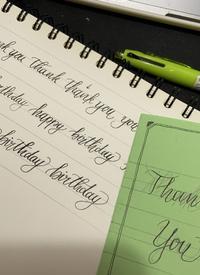 thank you thank thank you you
birthday happy birthday
birthday birthday
Than
You